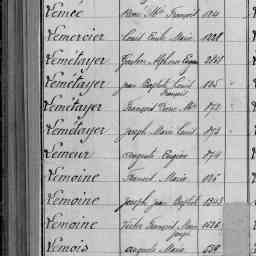 Lemée René Mie François 124
Lemercier Louis Emile Marie 1228
Lemétayer Gaston Alphonse Eugène
Lemétayer Jean Baptiste Louis
François
Lemétayer François Pierre Mie 872
Lemétayer Joseph Marie Louis 873
Lemeur Auguste Eugène 874
Lemoine François Marie 126
Lemoine Joseph Jean Baptiste 1343
Lemoine Victor François Marie
Joseph
Lemois Auguste Marie 539